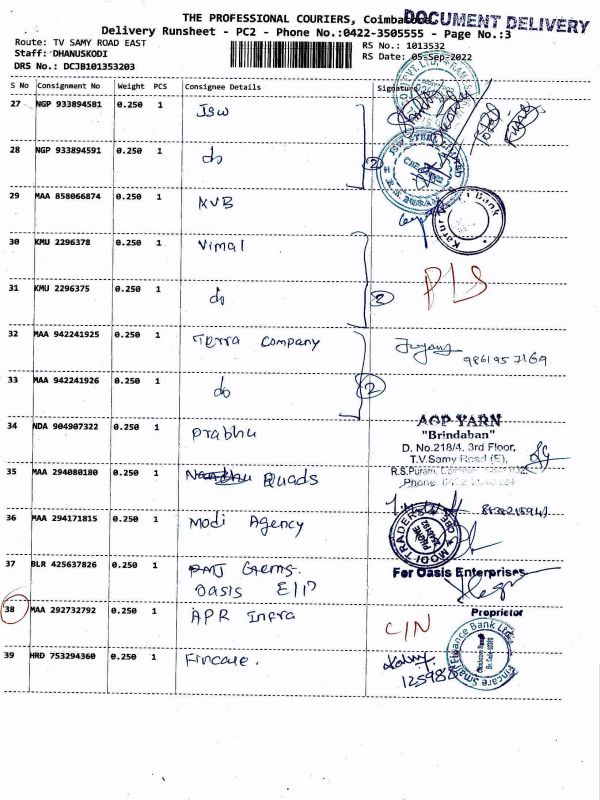 THE PROFESSIONAL COURIERS, Coimbatore
DOCUMENT DELIVERY
Delivery Runsheet - PC2 - Phone No.:0422-3505555 - Page No.:3
Route: TV SAMY ROAD EAST
RS No.: 1013532
Staff: DHANUSKODI
RS Date: 05-Sep-2022
DRS No.: DCJB101353203
S No Consignment No Weight PCS Consignee Details Signature
27 NGP 933894581 0.250 1 JSW
28 NGP 933894591 0.250 1 do 2
29 MAA 858066874 0.250 1 KVB
Karur Bank
30 KMU 2296378 0.250 1 Vimal
31 KMU 2296375 0.250 1 do 2 PLS
32 MAA 942241925 0.250 1 Terra Company
9861957169
33 MAA 942241926 0.250 1 do 2
34 NDA 904907322 0.250 1 Prabhu
AOP YARN
"Brindaban"
D. No.218/4, 3rd Floor,
T.V.Samy Road (E),
R.S.Puram,
Phone:
35 MAA 294080180 0.250 1 Quads
36 MAA 294171815 0.250 1 Modi Agency
MODI TRADERS CBE
PHONE
37 BLR 425637826 0.250 1 PMJ Gems.
Oasis
For Oasis Enterprises
Proprietor
38 MAA 292732792 0.250 1 APR Infra C/N
39 HRD 753294360 0.250 1 Fincare.
Fincare Small Finance Bank